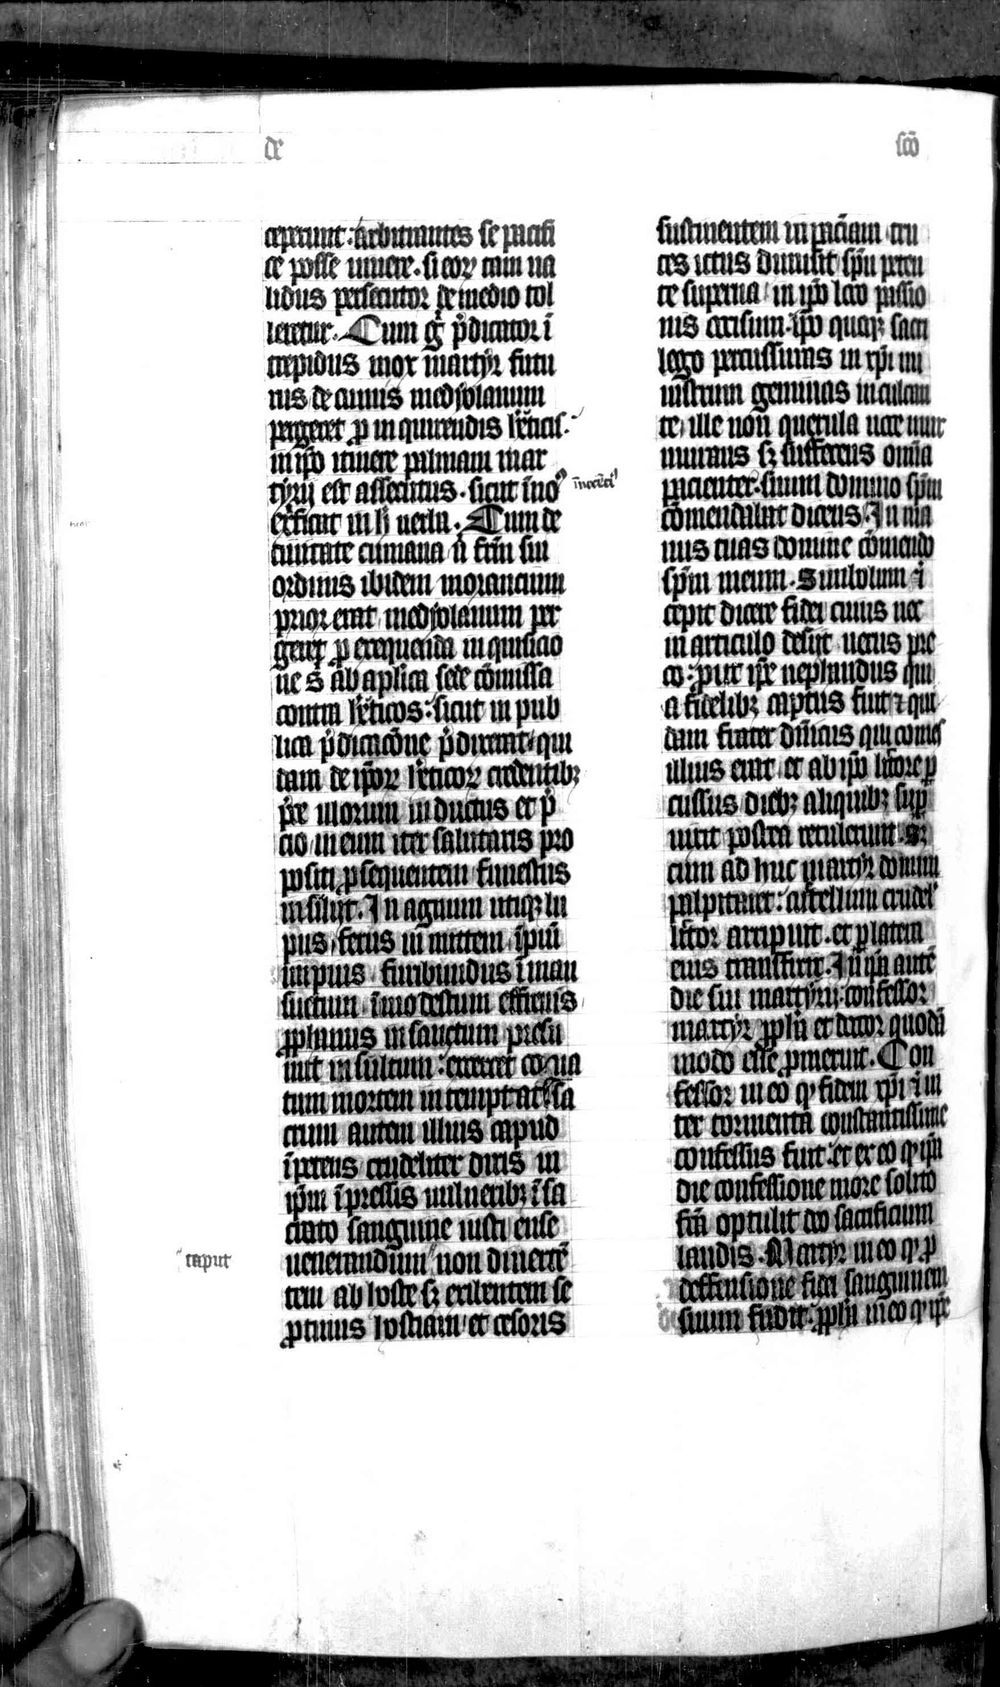 de
ceperunt . arbitrantes se pacifi
ce posse uiuere . si eoꝝ tam ua
lidus persecutor de medio tol
leretur . Cum gͦ p̄dicator ī
trepidus mox martyr futu
rus de cumis mediolanum
pergeret ꝓ in quirendis h̄eticis .
in ip̄o itinere palmam mar
tyrij est assecutus . sicut ī no
exficat in h̄ uerba . Cum de
ciuitate cumana u̇ fr̄m sui
ordinis ibidem morantium
prior erat mediolanum per
geret ꝓ exequenda in quisicio
ne s̄ ab aplica sede cōmissa
contra h̄eticos : sicut in pub
lica p̄dicacōne p̄dixerat / qui
dam de ip̄oꝝ h̄eticoꝝ credentibꝫ
p̄ce illorum in ductus et p̄
cio / in eum iter salutaris pro
positi ꝓsequentem funestus
in siliit . In agnum utiqꝫ lu
pus / ferus in mittem / ī pium
impius / furibundus ī man
suetum / ī modestum effrenis /
ꝓphanus in sanctum presu
mit in sultum : exercet cona
tum mortem in temptat / sa
crum autem illius capud
ī petens / crudeliter diris in
ip̄m ī pressis uulneribꝫ ī sa
ciato sanguine iusti ense
uenerandum non diuertē
tem ab hoste sꝫ exibentem se
ꝓtinus hostiam / et cesoris
īnocēci
caput
scō
sustinentem in paciam tru
ces ictus dimisit / sp̄u peten
te superna / in ip̄o loco passio
nis occisum . ip̄o quoqꝫ sacri
lego percussuras in xp̄i mi
nistrum geminas inculcan
te / ille non querula uoce mur
murans sꝫ sufferens omia
pacienter . suum domino sp̄m
cōmendabat dicens . In ma
nus tuas domine cōmendo
sp̄m meum . Simbolum ī
cepit dicere fidei cuius nec
in articulo desijt uerus pre
co : put ip̄e nephandus qui
a fidelibꝫ captus fuit ⁊ qui
dam frater dn̄icus qui comes
illius erat / et ab ip̄o lictore ꝑ
cussus diebꝫ aliquibꝫ suꝑ
uixit postea retulerunt . Sꝫ
cum ad huc martyr domini
palpitaret : cultellum crudel
lictor arripuit . et ꝑ latem
eius transfixit . In q̄ autē
die sui martyrij . confessor
martyr ꝓph̄a et doctor quodā
modo esse ꝓmeruit . Con
fessor in eo qꝫ fidem xp̄i in
ter tormenta constantissime
confessus fuit . et ex eo qꝫ ip̄a
die confessione more solito
fc̄a optulit deo sacrificium
laudis . Martyr in eo qꝫ ꝓ
deffensione fidei sanguinem
suum fudit . ꝓph̄a in eo qꝫ ip̄e